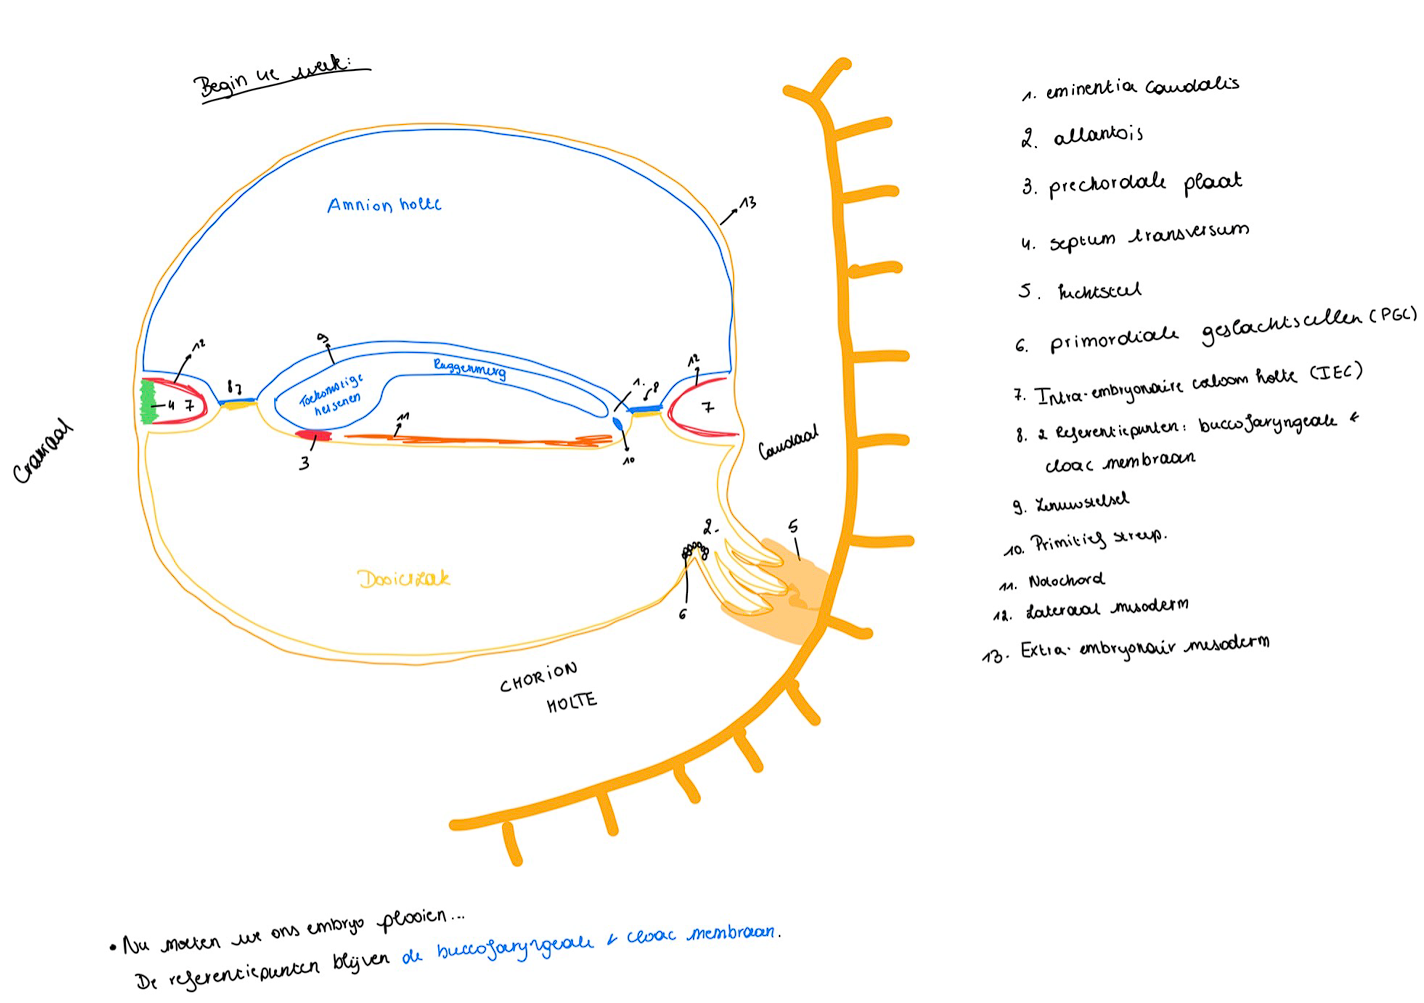 Begin 4e week:
Amnion holte
13
12
9
8
Toekomstige
hersenen
Ruggenmerg
1.
8
12
4
7
7
11
3
10
Craniaal
Caudaal
2.
5
6
Dooierzak
CHORION
HOLTE
1. eminentia caudalis
2. allantois
3. prechordale plaat
4. septum transversum
5. hechtsteel
6. primordiale geslachtscellen (PGC)
7. Intra-embryonaire coeloom holte (IEC)
8. 2 Referentiepunten: buccofaryngeale &
cloac membraan
9. Zenuwstelsel
10. Primitief streep.
11. Notochord
12. Lateraal mesoderm
13. Extra-embryonair mesoderm
• Nu moeten we ons embryo plooien...
De referentiepunten blijven de buccofaryngeale & cloac membraan.